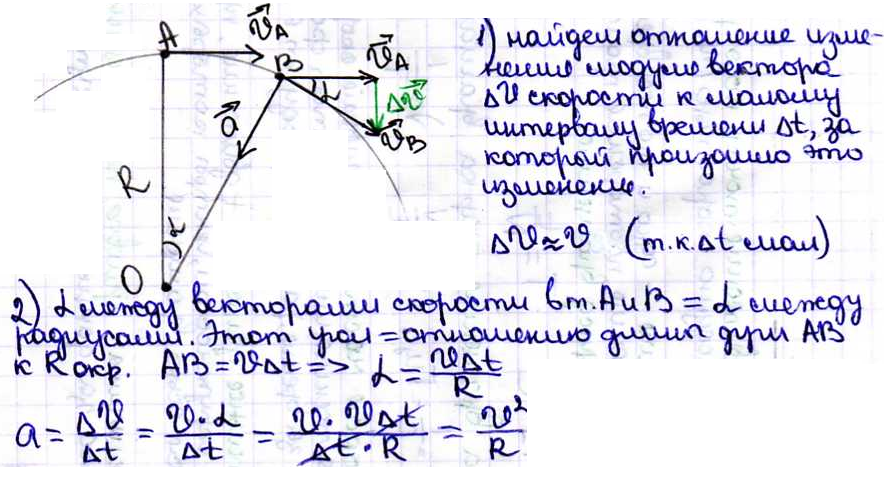 A
v⃗A
B
v⃗A
α
Δv⃗
v⃗B
a⃗
R
α
O
1) найдем отношение изме-
нения модуля вектора
ΔV скорости к малому
интервалу времени Δt, за
который произошло это
изменение.
ΔV≈V (т.к. Δt мал)
2) α между векторами скорости в т. A и B = α между
радиусами. Этот угол = отношению длины дуги AB
к R окр. AB = VΔt => α = VΔt/R
a = ΔV/Δt = V·α/Δt = V·VΔt/Δt·R = V²/R